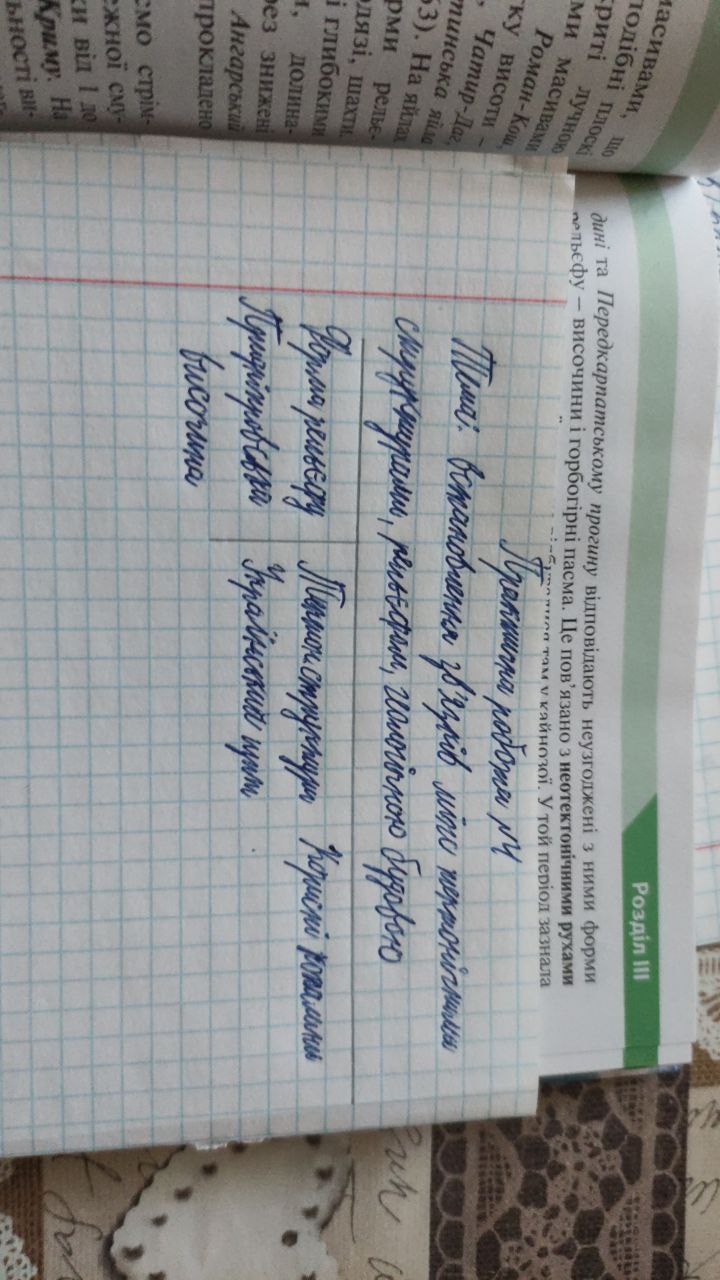 масивами, що
подібні плоскі
криті лучною
ми масивами
Роман-Кош,
тку висоти –
, Чатир-Даг,
тинська яйла
63). На яйлах
рми рельє-
одязі, шахти,
і глибокими
и, долина-
рез знижені
Ангарський
прокладено
ємо стрім-
ежної сму-
ки від 1 до
Криму. На
льності ви-
Розділ III
дині та Передкарпатському прогину відповідають неузгоджені з ними форми
рельєфу – височини і горбогірні пасма. Це пов’язано з неотектонічними рухами
там у кайнозої. У той період зазнала
Практична робота №4
Тема: Встановлення зв'язків між тектонічними
структурами, рельєфом, геологічною будовою
Форма рельєфу Тектоструктури Корисні копалини
Придніпровська Український щит
височина